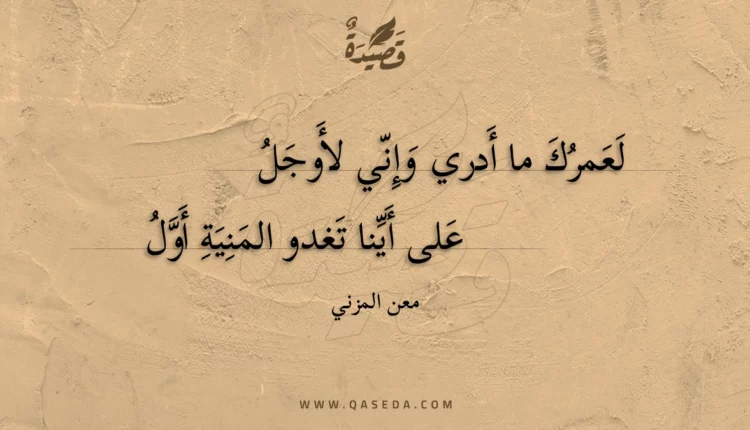 قَصِيدَةٌ
لَعَمرُكَ ما أَدري وَإِنّي لأَوجَلُ
عَلى أَيِّنا تَغدو المَنِيَةِ أَوَّلُ
معن المزني
WWW.QASEDA.COM